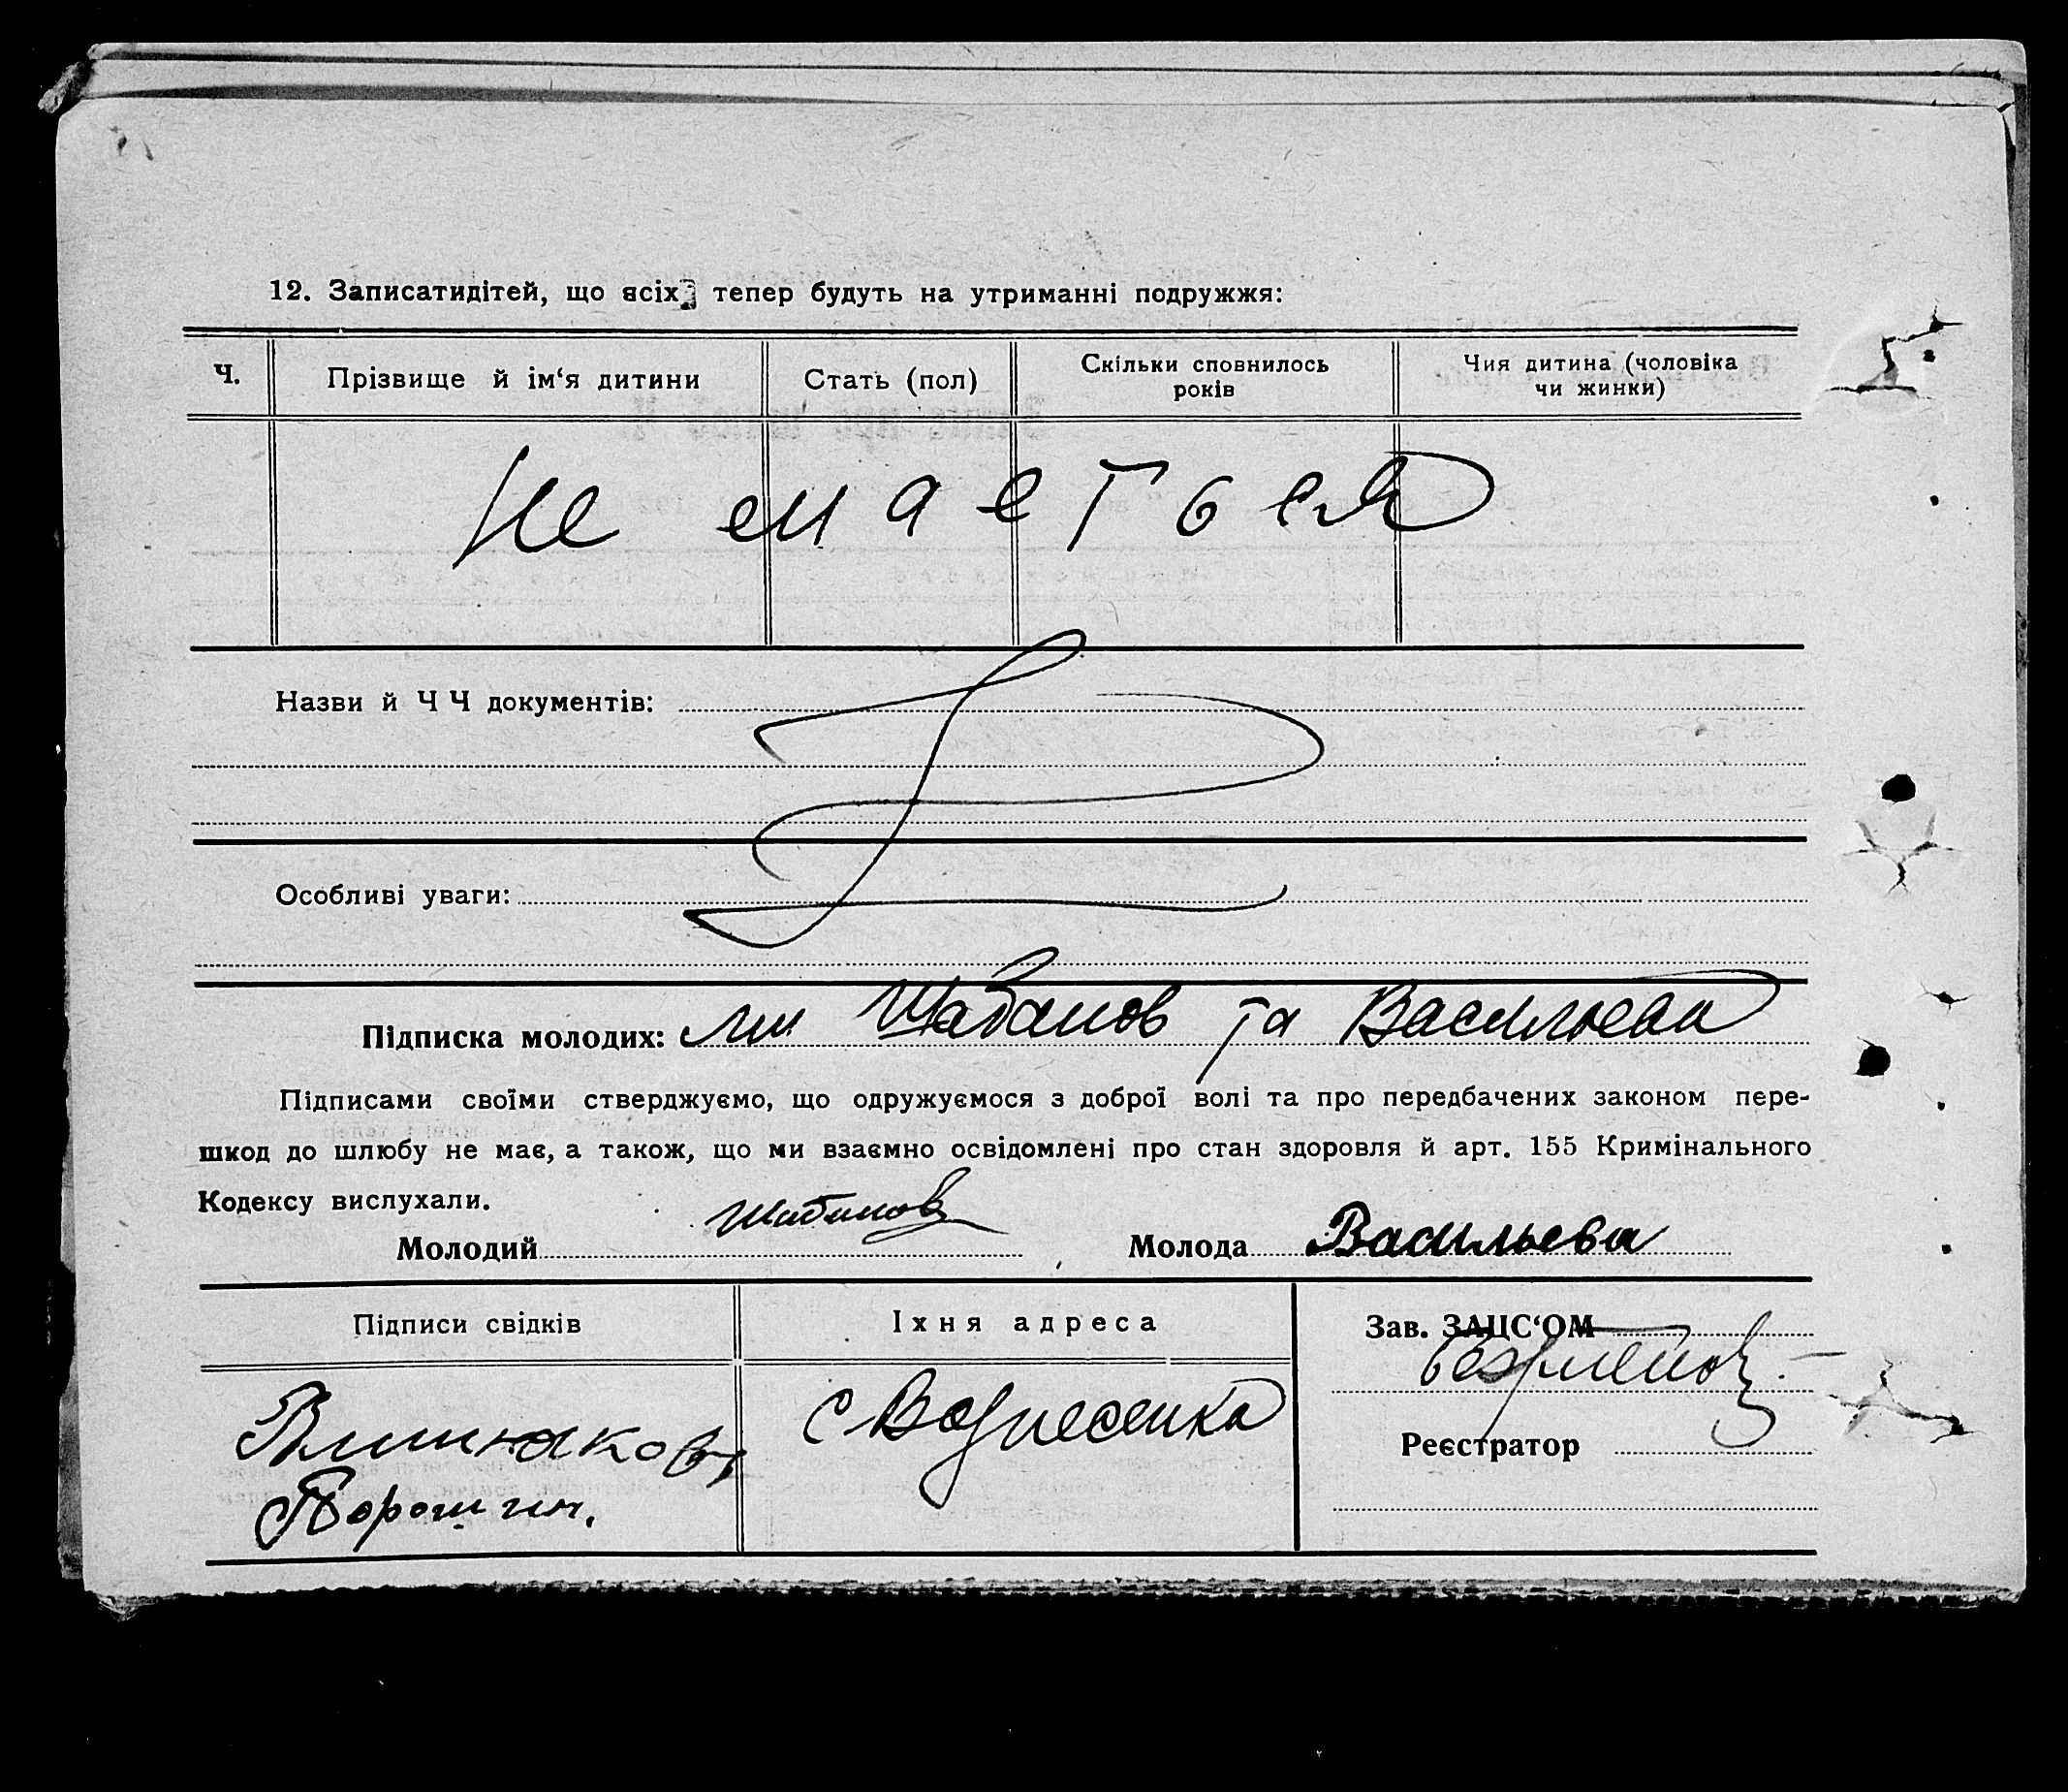 12. Записатидітей, що всіх тепер будуть на утриманні подружжя:
Ч.
Прізвище й ім‘я дитини
Стать (пол)
Скільки сповнилось
років
Чия дитина (чоловіка
чи жинки)
Не емаеться
Назви й Ч Ч документів:
Особливі уваги:
Підписка молодих: Ми Шабанов та Васильева
Підписами своїми стверджуємо, що одружуємося з доброї волі та про передбачених законом пере-
шкод до шлюбу не має, а також, що ми взаємно освідомлені про стан здоровля й арт. 155 Кримінального
Кодексу вислухали.
Молодий Шабанов Молода Васильева
Підписи свідків
Їхня адреса
Зав. ЗАЦС‘ОМ
с Вознесенка
Реєстратор
Порошин.